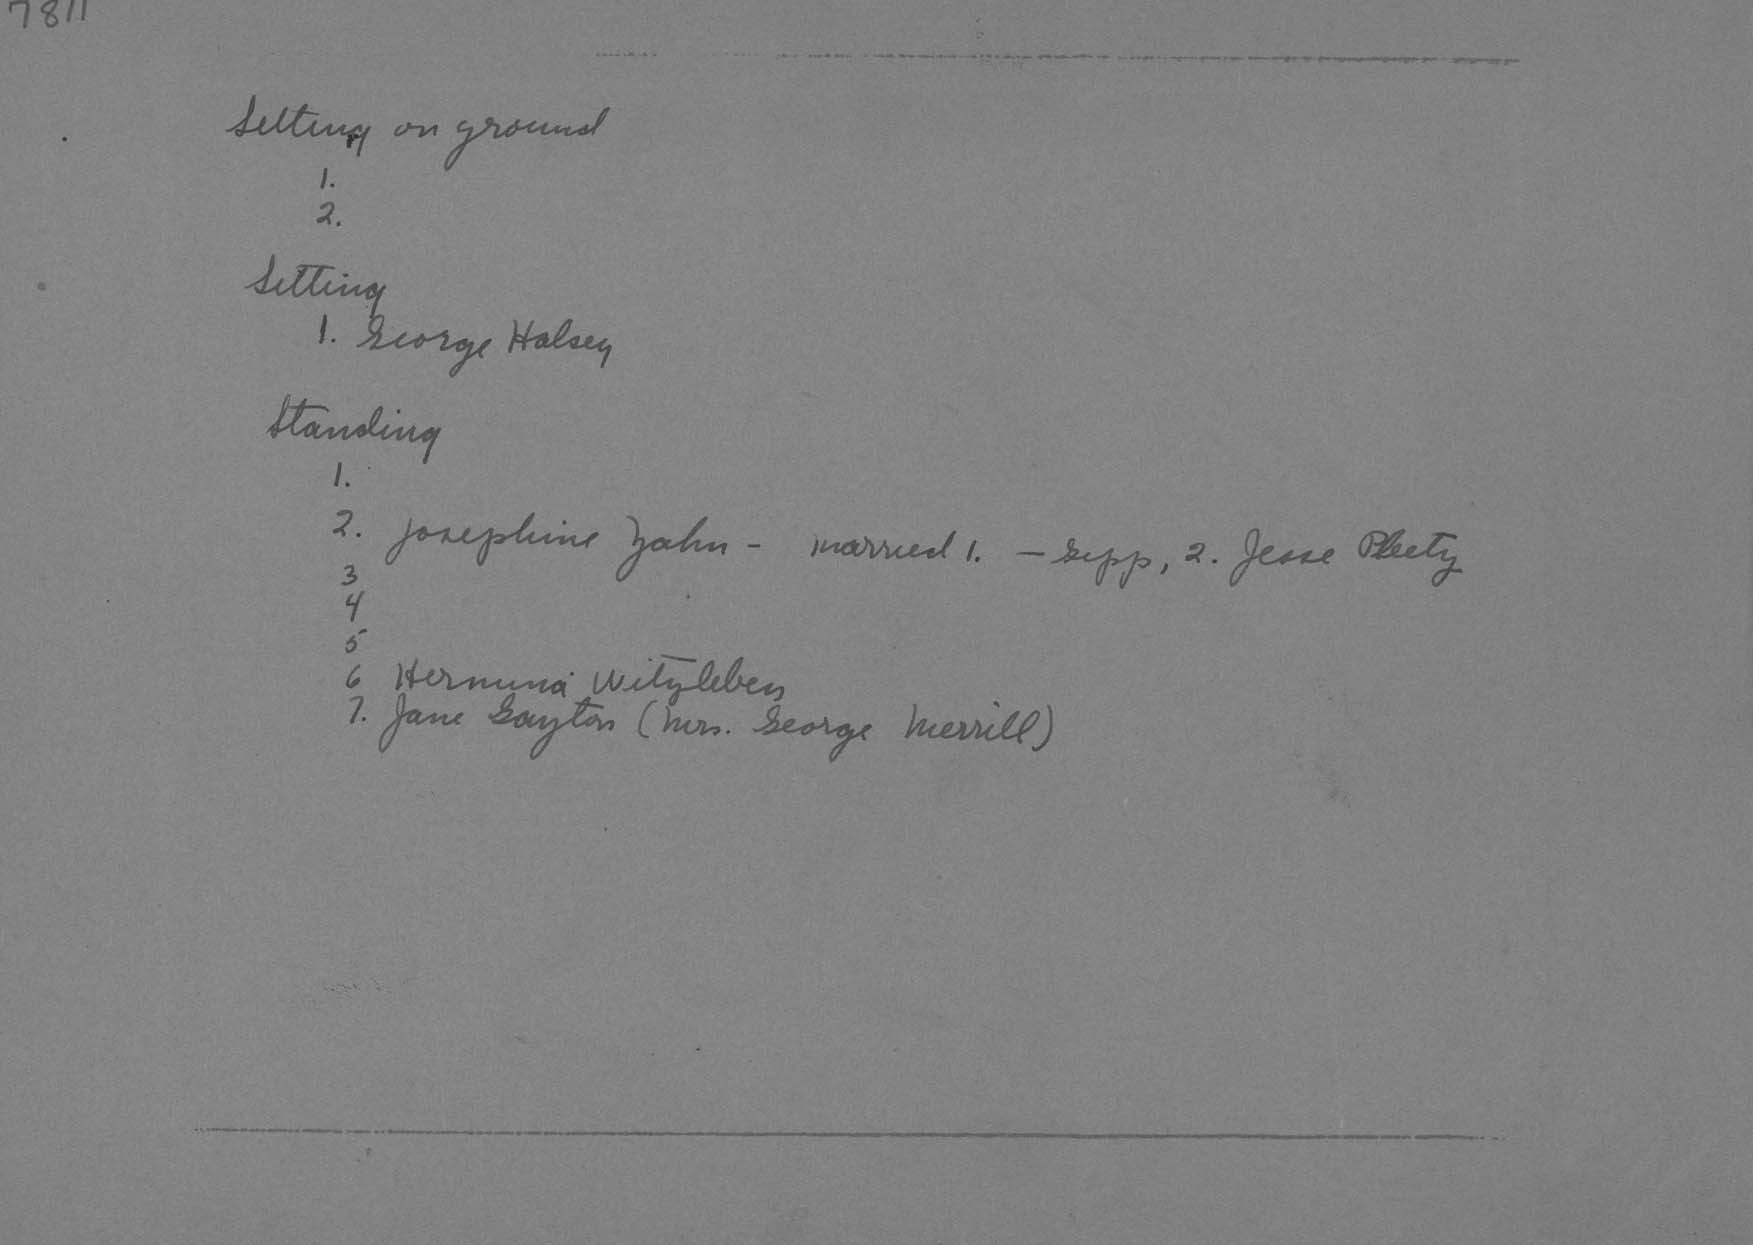 7811
Setting on ground
1.
2.
Setting
1. George Halsey
Standing
1.
2. Josephine Zahn - married 1. — Gepp, 2. Jesse
3
4
5
6 Hermina Witzleben
7. Jane Gayton (Mrs. George Merrill)